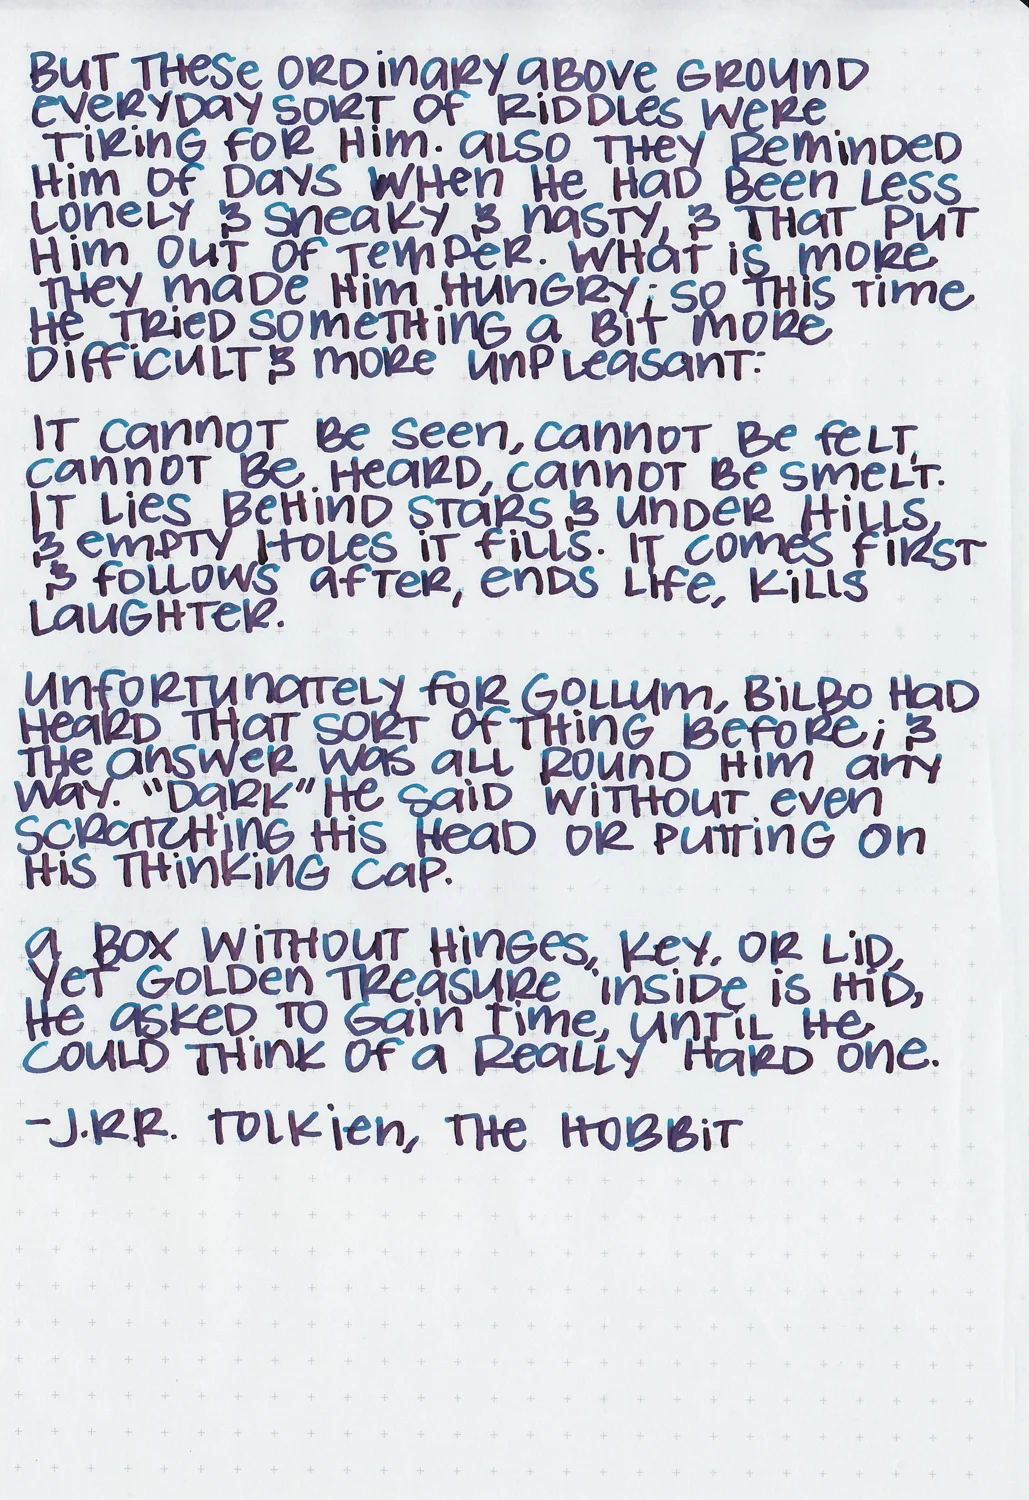 But these ordinary above ground
everyday sort of riddles were
tiring for him. Also they reminded
him of days when he had been less
lonely & sneaky & nasty, & that put
him out of temper. What is more
they made him hungry; so this time
he tried something a bit more
difficult & more unpleasant:

It cannot be seen, cannot be felt,
cannot be heard, cannot be smelt.
It lies behind stars & under hills,
& empty holes it fills. It comes first
& follows after, ends life, kills
laughter.

Unfortunately for Gollum, Bilbo had
heard that sort of thing before; &
the answer was all round him any
way. "Dark" he said without even
scratching his head or putting on
his thinking cap.

A box without hinges, key, or lid,
yet golden treasure inside is hid,
he asked to gain time, until he
could think of a really hard one.

-J.R.R. Tolkien, The Hobbit